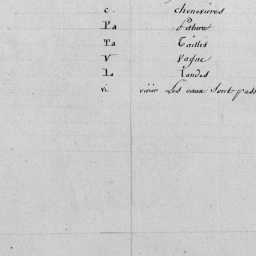 c. chenevieres
Pa Pature
Ta Taillis
V Vague
L Landes
vi Les eaux sont pass